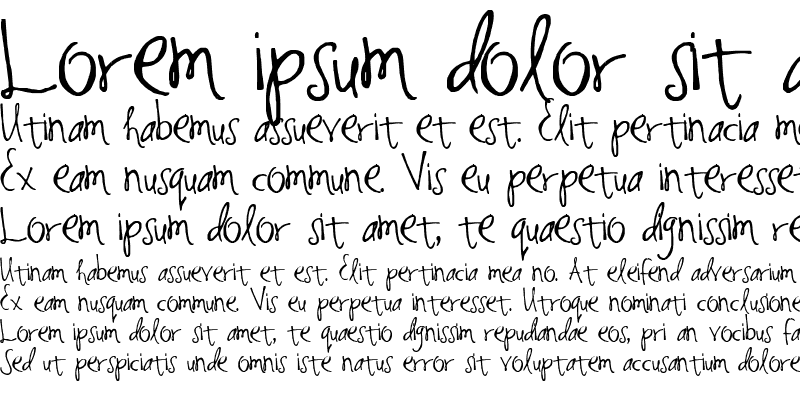 Lorem ipsum dolor sit a
Utinam habemus assueverit et est. Elit pertinacia me
Ex eam nusquam commune. Vis eu perpetua interesset
Lorem ipsum dolor sit amet, te quaestio dignissim re
Utinam habemus assueverit et est. Elit pertinacia mea no. At eleifend adversarium
Ex eam nusquam commune. Vis eu perpetua interesset. Utroque nominati conclusione
Lorem ipsum dolor sit amet, te quaestio dignissim repudiandae eos, pri an vocibus fa
Sed ut perspiciatis unde omnis iste natus error sit voluptatem accusantium dolore